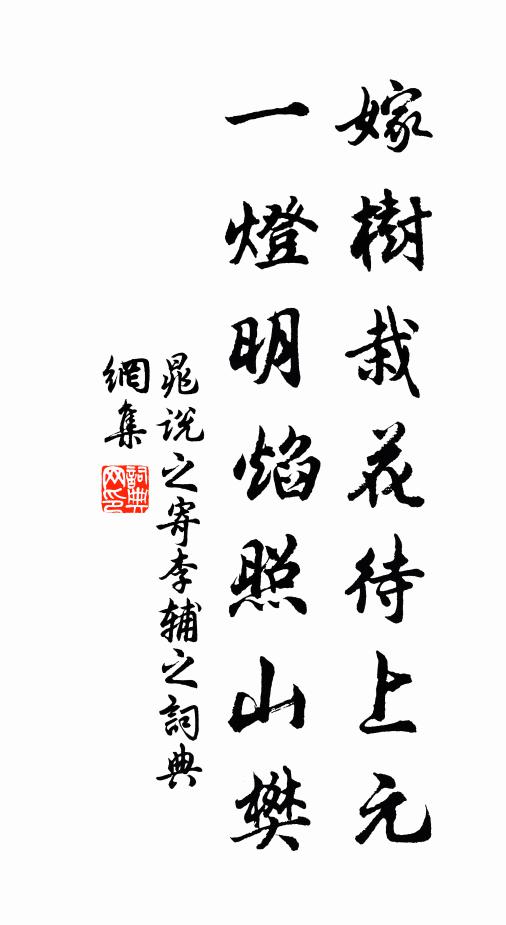 嫁樹栽花待上元
一燈明焰照山樊
晁說之寄李輔之詞典
網集
詞典網印